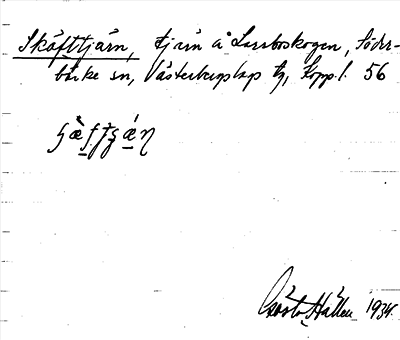 Skäfttjärn, tjärn å Larsboskogen, Söder-
bärke sn, Västerbergslags tg, Kopp. l. 56
Gösta Hallén 1934